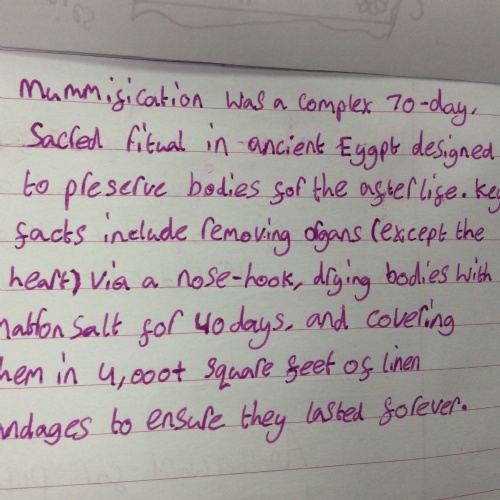 Mummification was a complex 70-day,
Sacred ritual in ancient Eygpt designed
to preserve bodies for the afterlife. Key
facts include removing organs (except the
heart) via a nose-hook, drying bodies with
natron salt for 40 days, and covering
them in 4,000+ square feet of linen
andages to ensure they lasted forever.